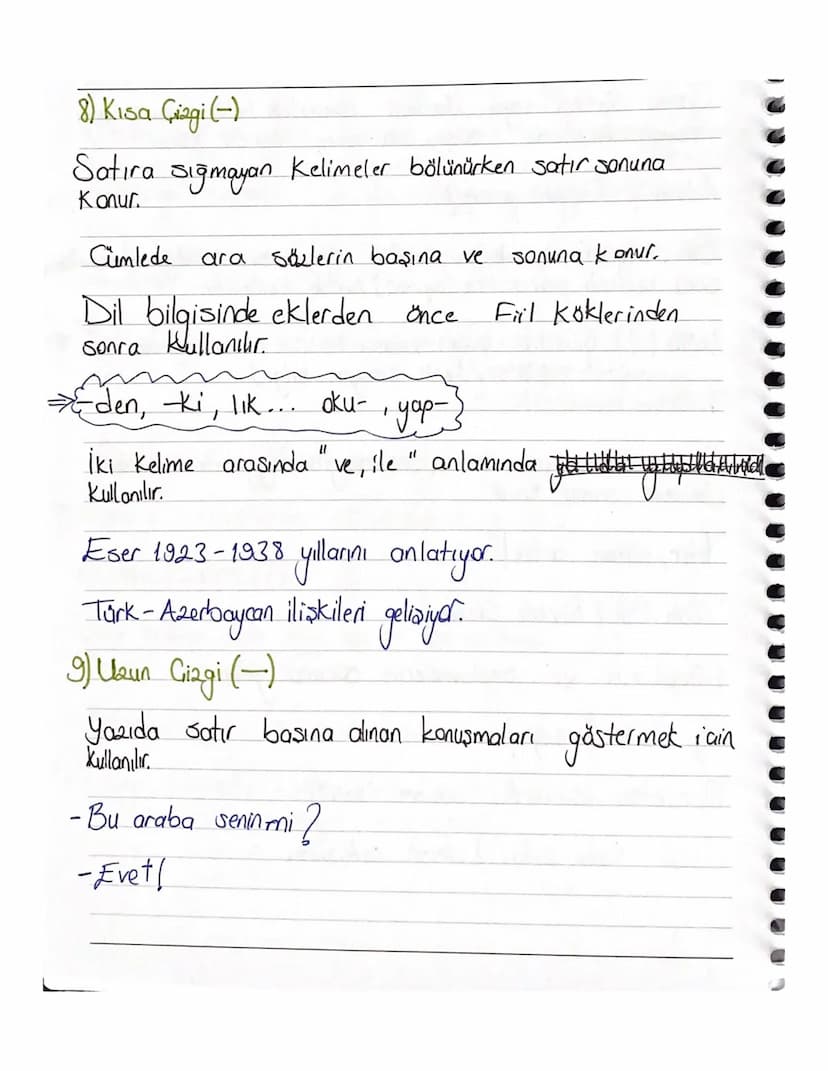 8) Kısa Çizgi (-)
Satıra sığmayan kelimeler bölünürken satır sonuna
konur.
Cümlede ara sözlerin başına ve sonuna konur.
Dil bilgisinde eklerden önce Fiil köklerinden
sonra kullanılır.
⇒ -den, -ki, lık... oku- , yap-
İki kelime arasında "ve, ile" anlamında
kullanılır.
Eser 1923-1938 yıllarını anlatıyor.
Türk-Azerbaycan ilişkileri gelişiyor.
9) Uzun Çizgi (—)
Yazıda satır basına alınan konuşmaları göstermek için
kullanılır.
- Bu araba senin mi?
- Evet!